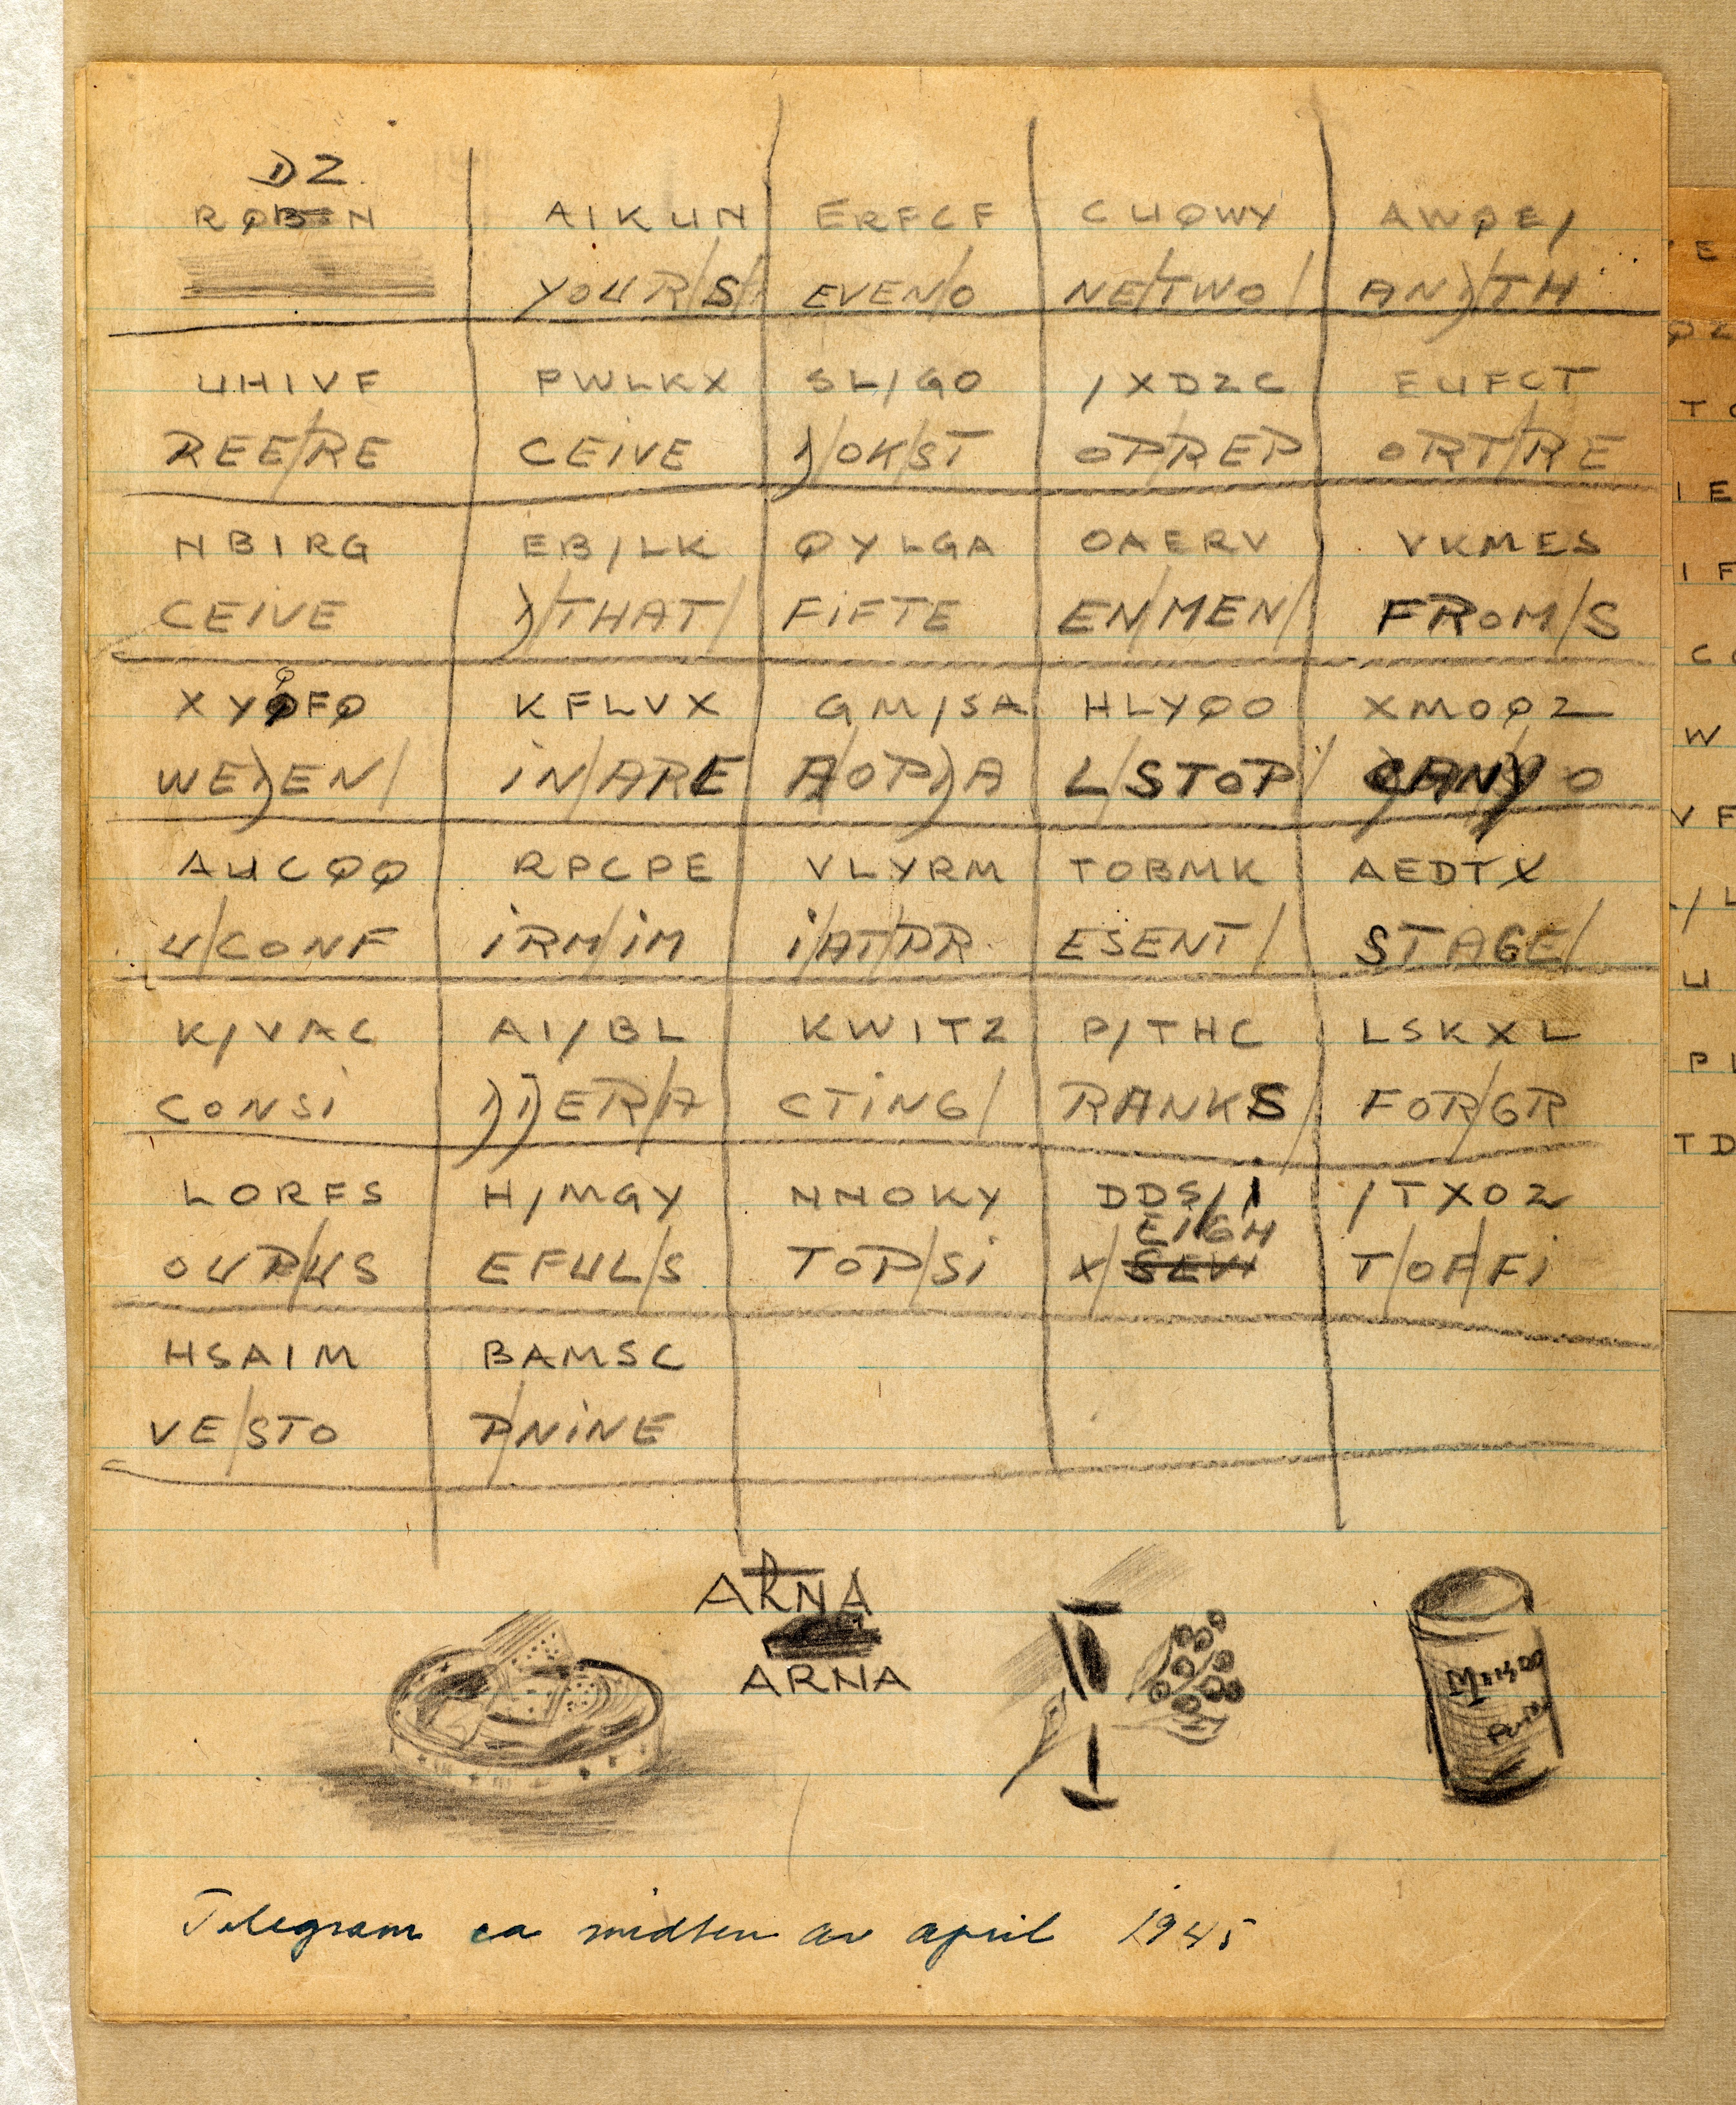 DZ
AIKUN ERFCF CUQWY AWQE/
YOUR/S/ EVEN/O NE/TWO/ AND/TH
UHIVF PWLKX SL/GO /XDZC EUFCT
REE/RE CEIVE D/OK/ST OP/REP ORT/RE
NBIRG EB/LK QYLGA OAERV VKMES
CEIVE D/THAT/ FIFTE EN/MEN/ FROM/S
Q
XYQFQ KFLVX GM/SA HLYQO XMOQZ
WEDEN/ IN/ARE A/OPDA L/STOP/ O
AUCQQ RPCPE VLYRM TOBMK AEDTX
U/CONF IRM/IM I/AT/PR ESENT/ STAGE/
K/VAC AI/BL KWITZ P/THC LSKXL
CONSI DDER/A CTING/ RANKS/ FOR/GR
LORFS H/MGY NNOKY DDS/I /TXOZ
EIGH
OUP/US EFUL/S TOP/SI X/ SEV T/OF/FI
HSAIM BAMSC
VE/STO P/NINE
ARNA
ARNA
Telegram ca midten av april 1945